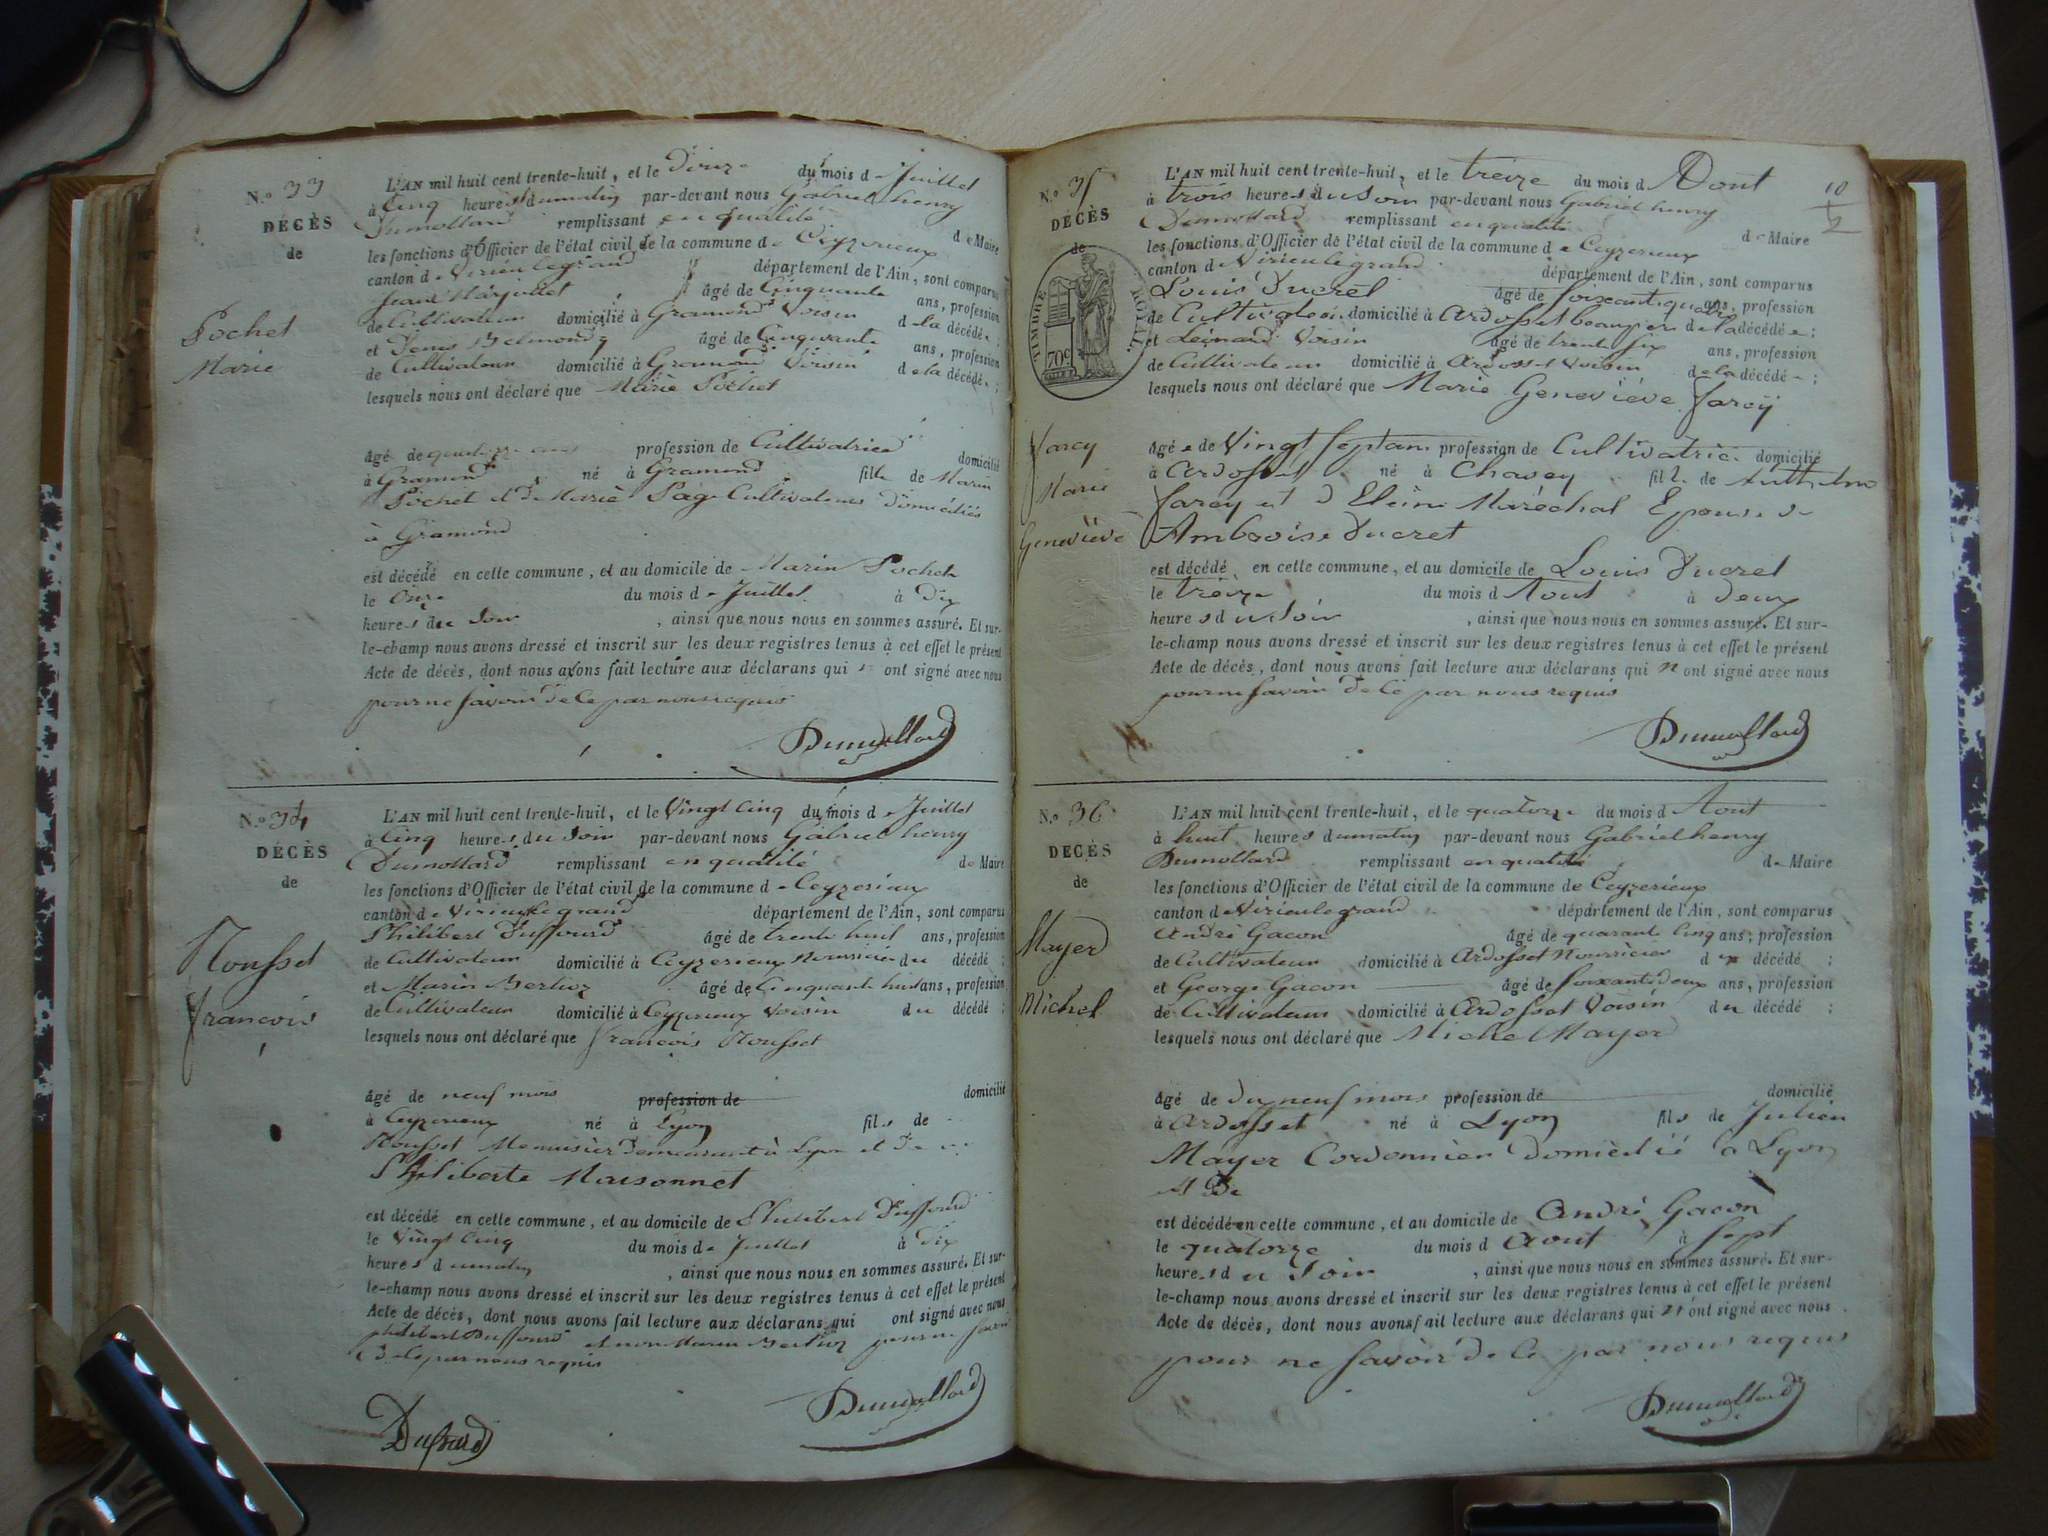 N.o 33
DÉCÈS
de
Pochet
Marie
L'AN mil huit cent trente-huit, et le douze du mois de Juillet
à Cinq heures du matin par-devant nous Gabriel henry
Dumollard remplissant en qualité de Maire
les fonctions d'Officier de l'état civil de la commune de Ceyzerieux
canton de Virieu le grand département de l'Ain, sont comparus
Jean âgé de Cinquante ans, profession
de Cultivateur domicilié à Gramond Voisin de la décédée ;
et Denis Belmond âgé de Cinquante ans, profession
de Cultivateur domicilié à Gramond Voisin de la décédée ;
lesquels nous ont déclaré que Marie Pochet
âgé de ans profession de Cultivatrice domicilié
à Gramond né à Gramond fille de Marin
Pochet et de Marie Page Cultivateurs Domiciliés
à Gramond
est décédé en cette commune, et au domicile de Marin Pochet
le Onze du mois de Juillet à Dix
heures du Soir , ainsi que nous nous en sommes assuré. Et sur-
le-champ nous avons dressé et inscrit sur les deux registres tenus à cet effet le présent
Acte de décès, dont nous avons fait lecture aux déclarans qui n' ont signé avec nous
pour ne savoir de ce par nous requis
Dumollard
N.o 34
DÉCÈS
de
Rousset
François
L'AN mil huit cent trente-huit, et le Vingt Cinq du mois de Juillet
à Cinq heures du Soir par-devant nous Gabriel henry
Dumollard remplissant en qualité de Maire
les fonctions d'Officier de l'état civil de la commune de Ceyzerieux
canton de Virieu le grand département de l'Ain, sont comparus
Philibert Dussourd âgé de trente huit ans, profession
de Cultivateur domicilié à Ceyzerieux Nourricier du décédé ;
et Marin Berlioz âgé de Cinquante huit ans, profession
de Cultivateur domicilié à Ceyzerieux Voisin du décédé ;
lesquels nous ont déclaré que françois Rousset
âgé de neuf mois profession de domicilié
à Ceyzerieux né à Lyon fils de
Rousset Menuisier Demeurant à Lyon et De
Philiberte Maisonnet
est décédé en cette commune, et au domicile de Philibert Dussourd
le Vingt Cinq du mois de Juillet à Dix
heures du matin , ainsi que nous nous en sommes assuré. Et sur-
le-champ nous avons dressé et inscrit sur les deux registres tenus à cet effet le présent
Acte de décès, dont nous avons fait lecture aux déclarans qui ont signé avec nous
philibert Dussourd et non Marin Berlioz pour ne savoir
De ce par nous requis
Dussourd
Dumollard
N.o 35
DÉCÈS
de
TIMBRE ROYAL.
70c
Jarcy
Marie
Geneviève
10
2
L'AN mil huit cent trente-huit, et le treize du mois d Aout
à trois heures du Soir par-devant nous Gabriel henry
Dumollard remplissant en qualité de Maire
les fonctions d'Officier de l'état civil de la commune de Ceyzerieux
canton de Virieu le grand département de l'Ain, sont comparus
Louis Ducret âgé de Soixante quatre ans, profession
de Cultivateur domicilié à Ardosset beaupere de la décédée ;
et Léonard Voisin âgé de trente six ans, profession
de Cultivateur domicilié à Ardosset Voisin de la décédée ;
lesquels nous ont déclaré que Marie Geneviève Jarcy
âgée de Vingt Sept ans profession de Cultivatrice domicilié
à Ardosset né à Chavey fille de Anthelme
Jarcy et D Maréchal Epouse de
Ambroise Ducret
est décédé en cette commune, et au domicile de Louis Ducret
le treize du mois d Aout à Deux
heures du Soir , ainsi que nous nous en sommes assuré. Et sur-
le-champ nous avons dressé et inscrit sur les deux registres tenus à cet effet le présent
Acte de décès, dont nous avons fait lecture aux déclarans qui n ont signé avec nous
pour ne savoir de ce par nous requis
Dumollard
N.o 36
DÉCÈS
de
Mayer
Michel
L'AN mil huit cent trente-huit, et le quatorze du mois d Aout
à huit heures du matin par-devant nous Gabriel henry
Dumollard remplissant en qualité de Maire
les fonctions d'Officier de l'état civil de la commune de Ceyzerieux
canton de Virieu le grand département de l'Ain, sont comparus
André Gacon âgé de quarante Cinq ans, profession
de Cultivateur domicilié à Ardosset Nourricier du décédé ;
et George Gacon âgé de Soixante Deux ans, profession
de Cultivateur domicilié à Ardosset Voisin du décédé ;
lesquels nous ont déclaré que Michel Mayer
âgé de Dix neuf mois profession de domicilié
à Ardosset né à Lyon fils de Julien
Mayer Cordonnier Domicilié à Lyon
et De
est décédé en cette commune, et au domicile de André Gacon
le quatorze du mois d Aout à Sept
heures du Soir , ainsi que nous nous en sommes assuré. Et sur-
le-champ nous avons dressé et inscrit sur les deux registres tenus à cet effet le présent
Acte de décès, dont nous avons fait lecture aux déclarans qui n' ont signé avec nous
pour ne savoir de ce par nous requis
Dumollard